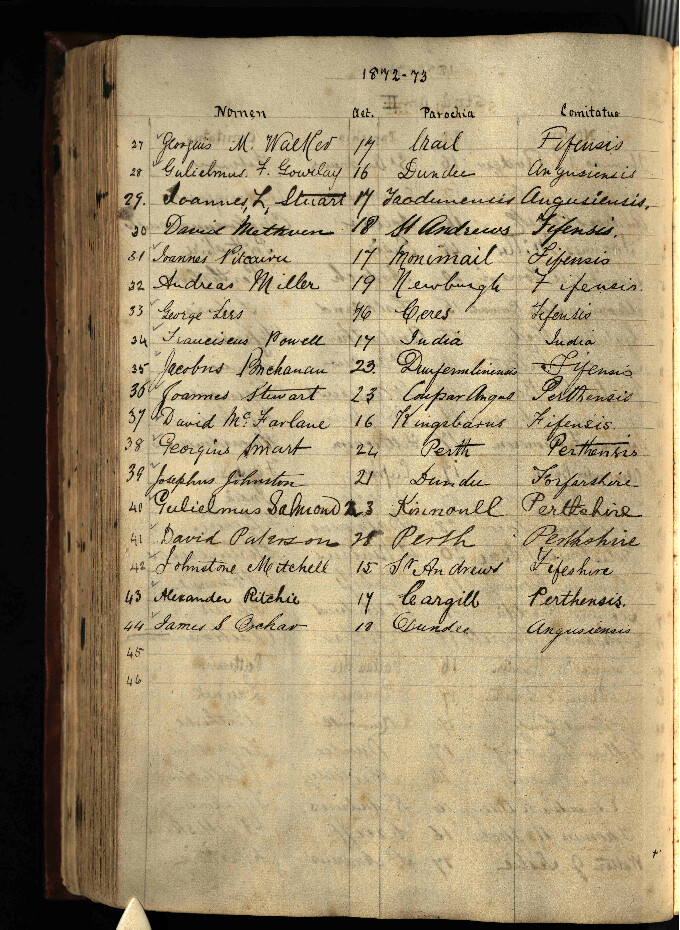 1872-73
Nomen Aet. Parochia Comitatus
27 Georgius M. Walker 17 Crail Fifensis
28 Gulielmus F. Gowrlay 16 Dundee Angusiensis
29. Ioannes L. Stuart 17 Taodunensis Angusiensis.
30 David Methven 18 St Andrews Fifensis.
31 Ioannes Pitcairn 17 Monimail Fifensis
32 Andreas Miller 19 Newburgh Fifensis.
33 George Lees 16 Ceres Fifensis
34 Franciscus Powell 17 India India
35 Jacobus Buchanan 23. Dunfermlinensis Fifensis
36 Joannes Stewart 23 Coupar Angus Perthensis
37 David McFarlane 16 Kingsbarns Fifensis.
38 Georgius Smart 24 Perth Perthensis
39 Josephus Johnston 21 Dundee Forfarshire
40 Gulielmus Salmond 23 Kinnoull Perthshire
41 David Paterson 28 Perth Perthshire
42 Johnstone Mitchell 15 St Andrews Fifeshire
43 Alexander Ritchie 17 Cargill Perthensis.
44 James S 18 Dundee Angusiensis
45
46